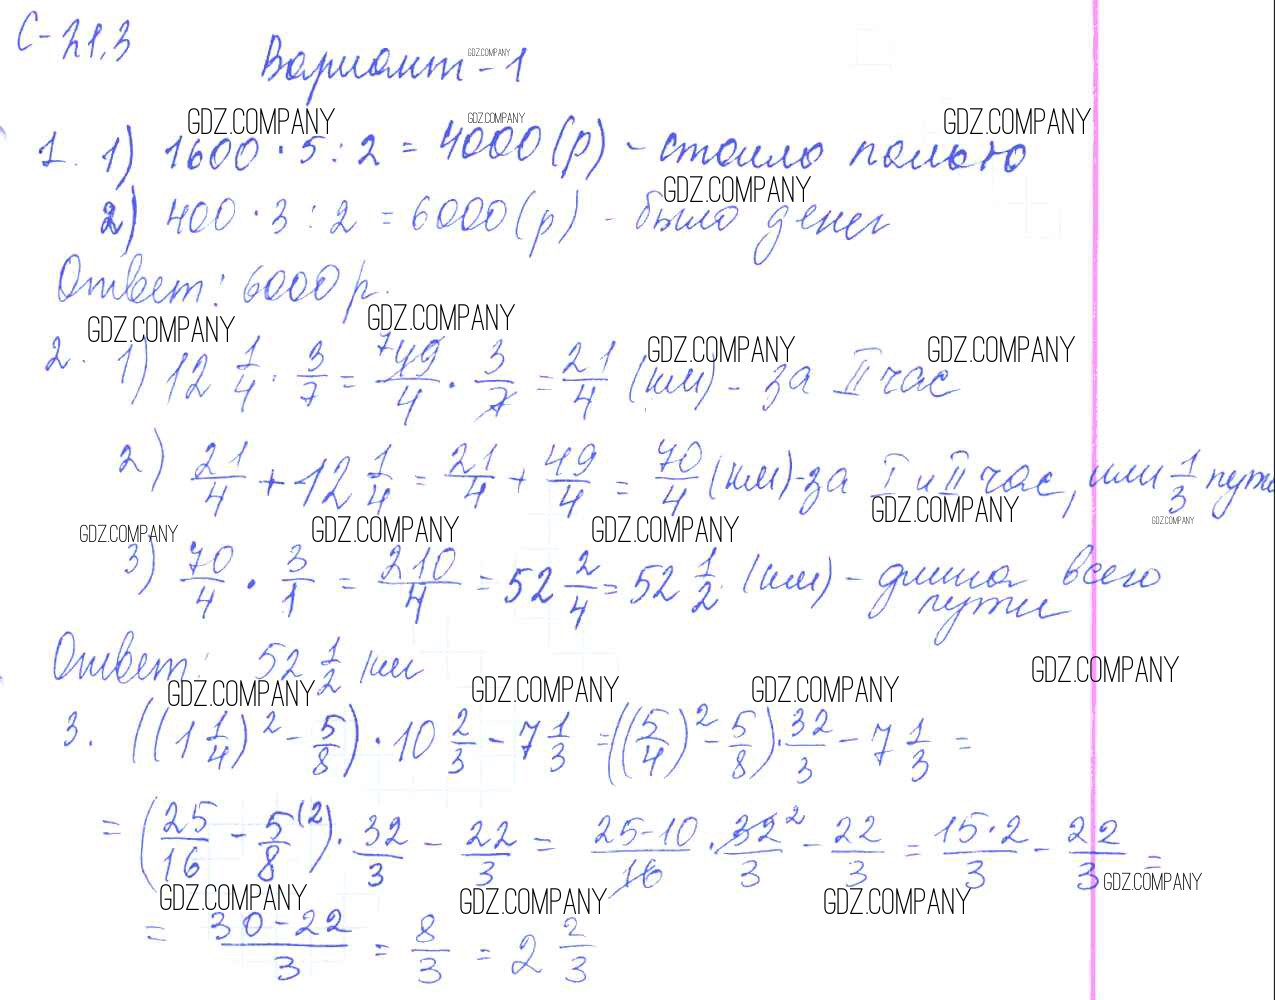 С-21.3
Вариант-1
GDZ.COMPANY
GDZ.COMPANY GDZ.COMPANY GDZ.COMPANY
1. 1) 1600 · 5 : 2 = 4000 (р) - стоило пальто
GDZ.COMPANY
2) 400 · 3 : 2 = 6000 (р) - было денег
Ответ: 6000 р.
GDZ.COMPANY GDZ.COMPANY GDZ.COMPANY GDZ.COMPANY
2. 1) 12 1/4 · 3/7 = 49/4 · 3/7 = 21/4 (км) - за II час
2) 21/4 + 12 1/4 = 21/4 + 49/4 = 70/4 (км) - за I и II час, или 1/3 пути
GDZ.COMPANY GDZ.COMPANY GDZ.COMPANY GDZ.COMPANY GDZ.COMPANY
3) 70/4 · 3/1 = 210/4 = 52 2/4 = 52 1/2 (км) - длина всего
пути
Ответ: 52 1/2 км
GDZ.COMPANY GDZ.COMPANY GDZ.COMPANY GDZ.COMPANY
3. ((1 1/4)² - 5/8) · 10 2/3 - 7 1/3 = ((5/4)² - 5/8) · 32/3 - 7 1/3 =
= (25/16 - 5/8 (2) · 32/3 - 22/3 = 25-10/16 · 32²/3 - 22/3 = 15·2/3 - 22/3 =
GDZ.COMPANY GDZ.COMPANY GDZ.COMPANY GDZ.COMPANY
= 30-22/3 = 8/3 = 2 2/3